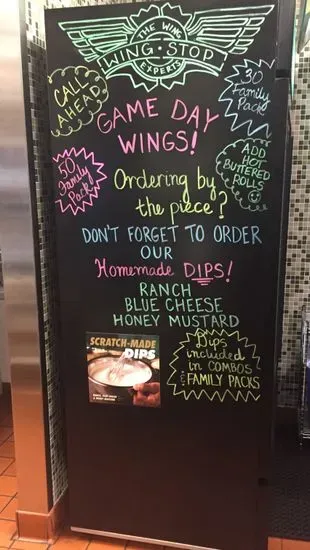 THE WING
WING·STOP
EXPERTS
CALL
AHEAD
30
Family
Pack
GAME DAY
WINGS!
50
Family
Pack
ADD
HOT
BUTTERED
ROLLS
Ordering by
the piece?
DON'T FORGET TO ORDER
OUR
Homemade DIPS!
RANCH
BLUE CHEESE
HONEY MUSTARD
SCRATCH-MADE
DIPS
Dips
included
in COMBOS
& FAMILY PACKS